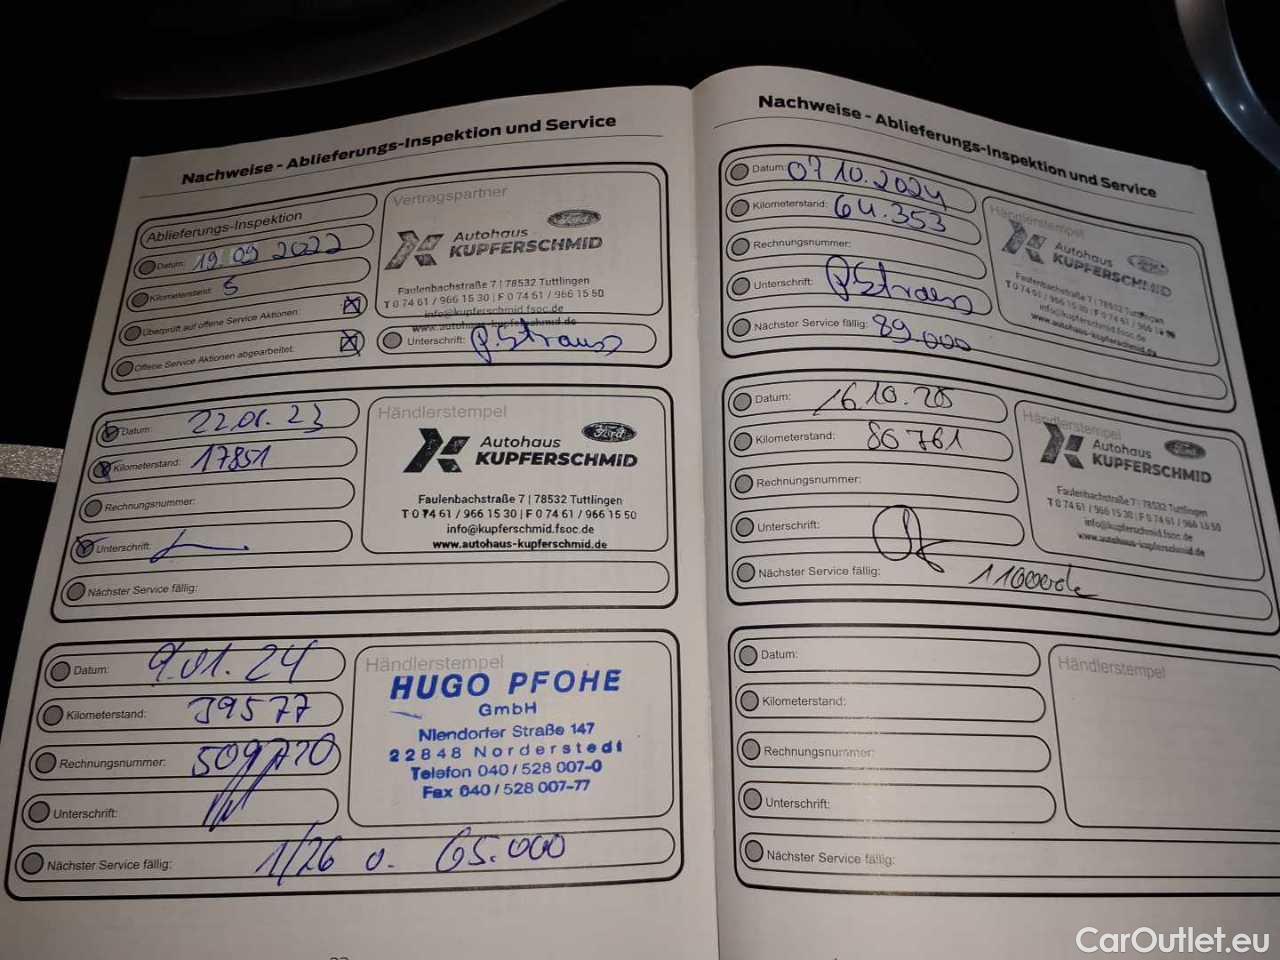 Nachweise - Ablieferungs-Inspektion und Service
Ablieferungs-Inspektion
Datum: 19.09 2022
Kilometerstand: 5
Überprüft auf offene Service Aktionen:
Offene Service Aktionen abgearbeitet:
Vertragspartner
Ford
Autohaus
KUPFERSCHMID
Faulenbachstraße 7 | 78532 Tuttlingen
T 0 74 61 / 966 15 30 | F 0 74 61 / 966 15 50
info@kupferschmid.fsoc.de
www.autohaus-kupferschmid.de
Unterschrift: P. Strauss
Datum:
Kilometerstand: 17851
Rechnungsnummer:
Unterschrift:
Nächster Service fällig:
Händlerstempel
Ford
Autohaus
KUPFERSCHMID
Faulenbachstraße 7 | 78532 Tuttlingen
T 0 74 61 / 966 15 30 | F 0 74 61 / 966 15 50
info@kupferschmid.fsoc.de
www.autohaus-kupferschmid.de
Datum: 9.01.24
Kilometerstand: 39577
Rechnungsnummer:
Unterschrift:
Nächster Service fällig: 1/26 o. 65.000
Händlerstempel
HUGO PFOHE
GmbH
Niendorfer Straße 147
22848 Norderstedt
Telefon 040 / 528 007-0
Fax 040 / 528 007-77
Nachweise - Ablieferungs-Inspektion und Service
Datum: 07 10.2024
Kilometerstand: 64.353
Rechnungsnummer:
Unterschrift: P. Strauss
Nächster Service fällig: 89.000
Händlerstempel
Ford
Autohaus
KUPFERSCHMID
Faulenbachstraße 7 | 78532 Tuttlingen
T 0 74 61 / 966 15 30 | F 0 74 61 / 966 15
info@kupferschmid.fsoc.de
www.autohaus-kupferschmid.de
Datum: 16.10.25
Kilometerstand: 86761
Rechnungsnummer:
Unterschrift:
Nächster Service fällig:
Händlerstempel
Ford
Autohaus
KUPFERSCHMID
Faulenbachstraße 7 | 78532 Tuttlingen
T 0 74 61 / 966 15 30 | F 0 74 61 / 966 15 50
info@kupferschmid.fsoc.de
www.autohaus-kupferschmid.de
Datum:
Kilometerstand:
Rechnungsnummer:
Unterschrift:
Nächster Service fällig:
Händlerstempel
CarOutlet.eu